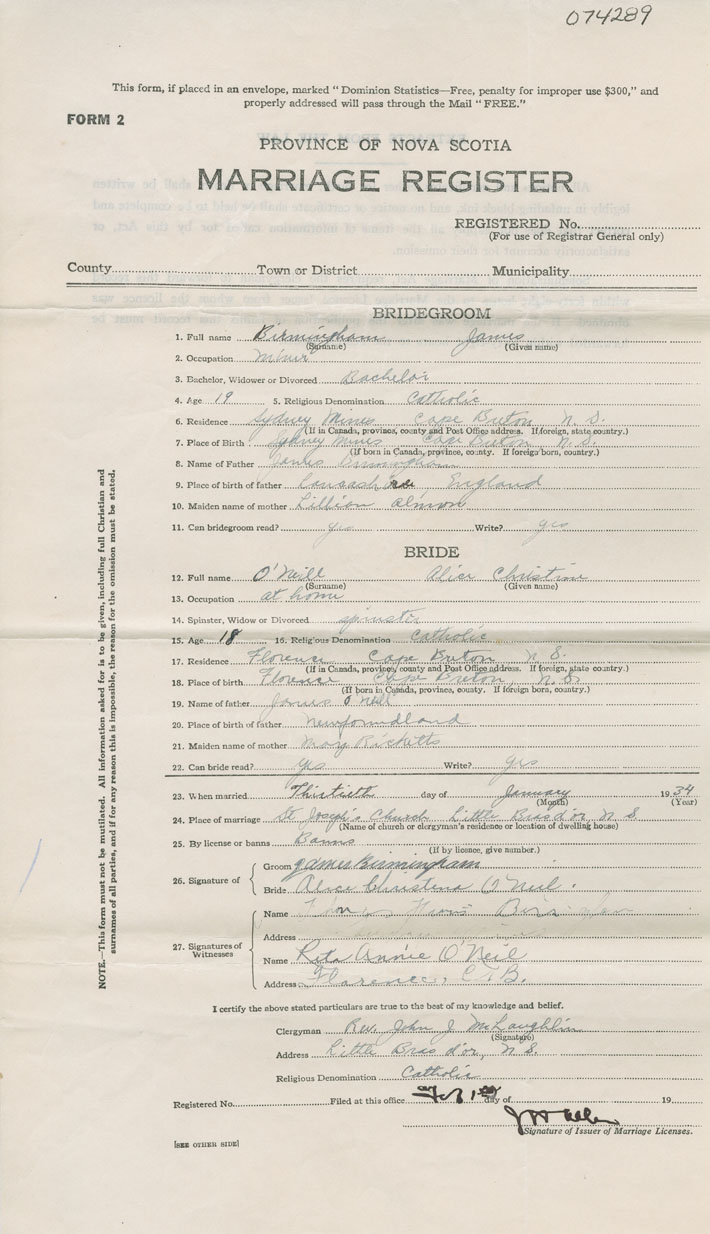 074289
This form, if placed in an envelope, marked "Dominion Statistics—Free, penalty for improper use $300," and
properly addressed will pass through the Mail "FREE."
FORM 2
PROVINCE OF NOVA SCOTIA
MARRIAGE REGISTER
REGISTERED No.
(For use of Registrar General only)
County Town or District Municipality
BRIDEGROOM
1. Full name Birmingham James
(Surname) (Given name)
2. Occupation Miner
3. Bachelor, Widower or Divorced Bachelor
4. Age 19 5. Religious Denomination Catholic
6. Residence Sydney Mines Cape Breton N. S.
(If in Canada, province, county and Post Office address. If foreign, state county.)
7. Place of Birth Sydney Mines Cape Breton N. S.
(If born in Canada, province, county. If foreign born, country.)
8. Name of Father James Birmingham
9. Place of birth of father Lancashire England
10. Maiden name of mother Lillian Almon
11. Can bridegroom read? yes Write? yes
BRIDE
12. Full name O'Neill Alice Christine
(Surname) (Given name)
13. Occupation at home
14. Spinster, Widow or Divorced spinster
15. Age 18 16. Religious Denomination Catholic
17. Residence Florence Cape Breton N. S.
(If in Canada, province, county and Post Office address. If foreign, state country.)
18. Place of birth Florence Cape Breton, N. S.
(If born in Canada, province, county. If foreign born, country.)
19. Name of father James O'Neil
20. Place of birth of father Newfoundland
21. Maiden name of mother Mary Ricketts
22. Can bride read? yes Write? yes
23. When married Thirtieth day of January 1934
(Month) (Year)
24. Place of marriage St Joseph's Church Little Bras d'or N S
(Name of church or clergyman's residence or location of dwelling house)
25. By license or banns Banns
(If by licence, give number.)
26. Signature of
Groom James Birmingham
Bride Alice Christena O'Neil
27. Signatures of Witnesses
Name
Address
Name Rita Annie O'Neil
Address Florence, C.B.
I certify the above stated particulars are true to the best of my knowledge and belief.
Clergyman Rev. John J McLaughlin
(Signature)
Address Little Bras d'or, N S.
Religious Denomination Catholic
Registered No. Filed at this office Feb 1st day of 19
Signature of Issuer of Marriage Licenses.
[SEE OTHER SIDE]
NOTE.—This form must not be mutilated. All information asked for is to be given, including full Christian and
surnames of all parties, and if for any reason this is impossible, the reason for the omission must be stated.